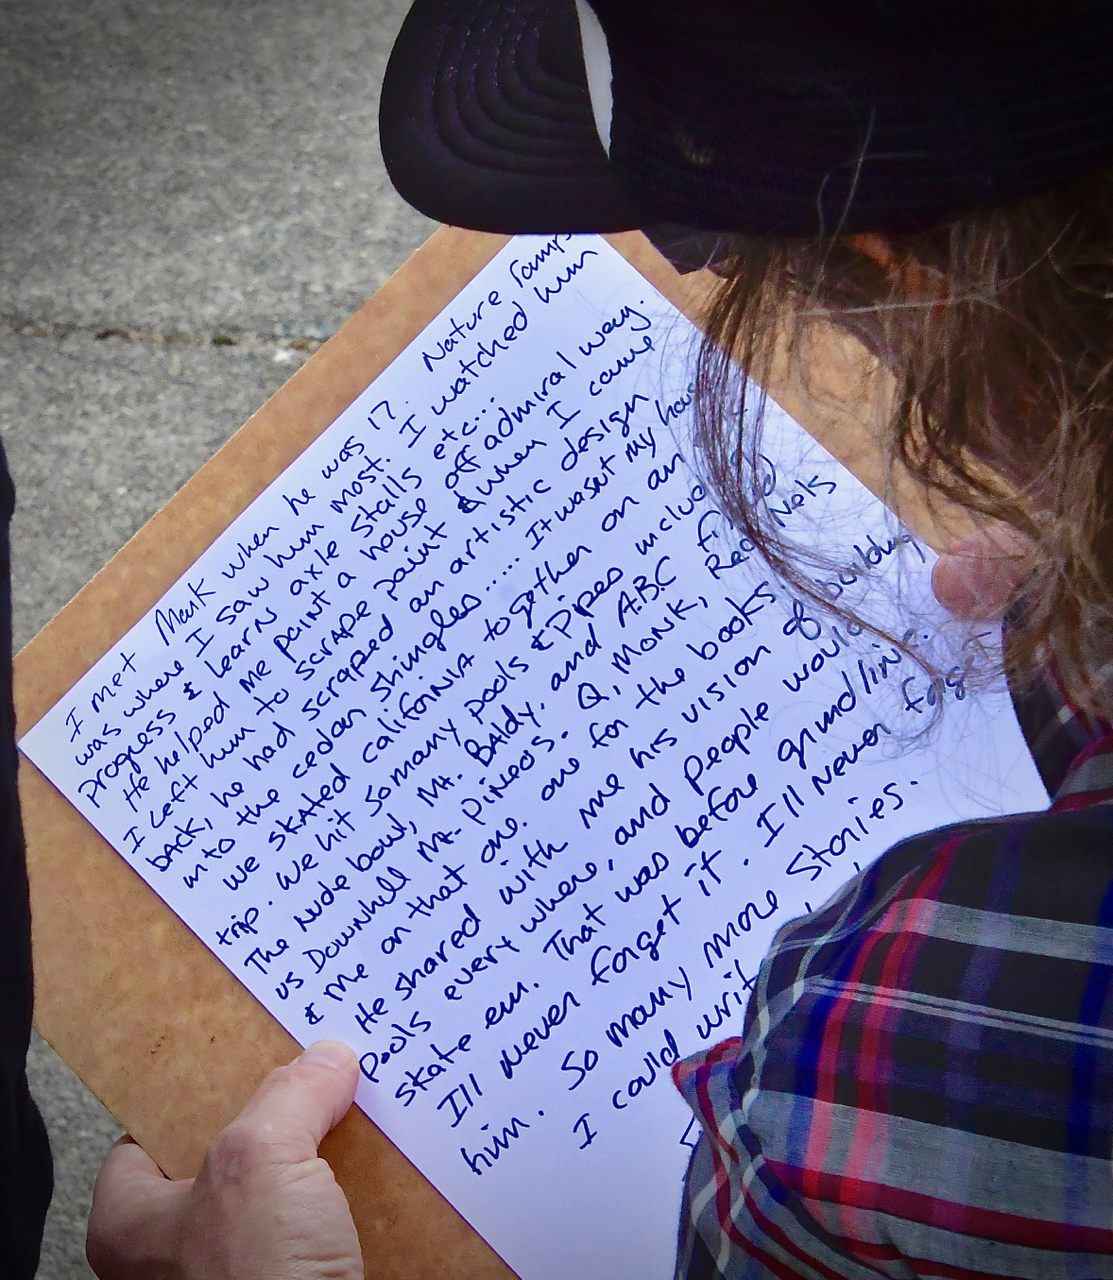 I met Mark when he was 17. Nature ramps
was where I saw him most. I watched him
Progress & learn axle stalls etc....
He helped me paint a house off admiral way.
I left him to scrape paint & when I came
back, he had scraped an artistic design
into the cedar shingles...... It wasnt my hous
we skated califorNIA together on an
trip. We hit so many pools & Pipes includ
The Nude bowl, Mt. BAldy. and A.B.C
us Downhill Mt. Pineos. Q, MONK, Red Nels
& me on that one. one for the books
He shared with me his vision of building
pools every where, and people would
skate em. That was before grindline.
Ill never forget it. Ill never forget
him. So many more stories.
I could writ